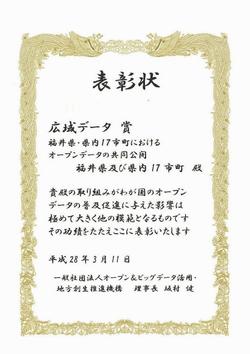 表彰状
広域データ 賞
福井県・県内17市町における
オープンデータの共同公開
福井県及び県内17市町 殿
貴殿の取り組みがわが国のオープン
データの普及促進に与えた影響は
極めて大きく他の模範となるものです
その功績をたたえここに表彰いたします
平成28年3月11日
一般社団法人オープン&ビッグデータ活用・
地方創生推進機構 理事長 坂村 健